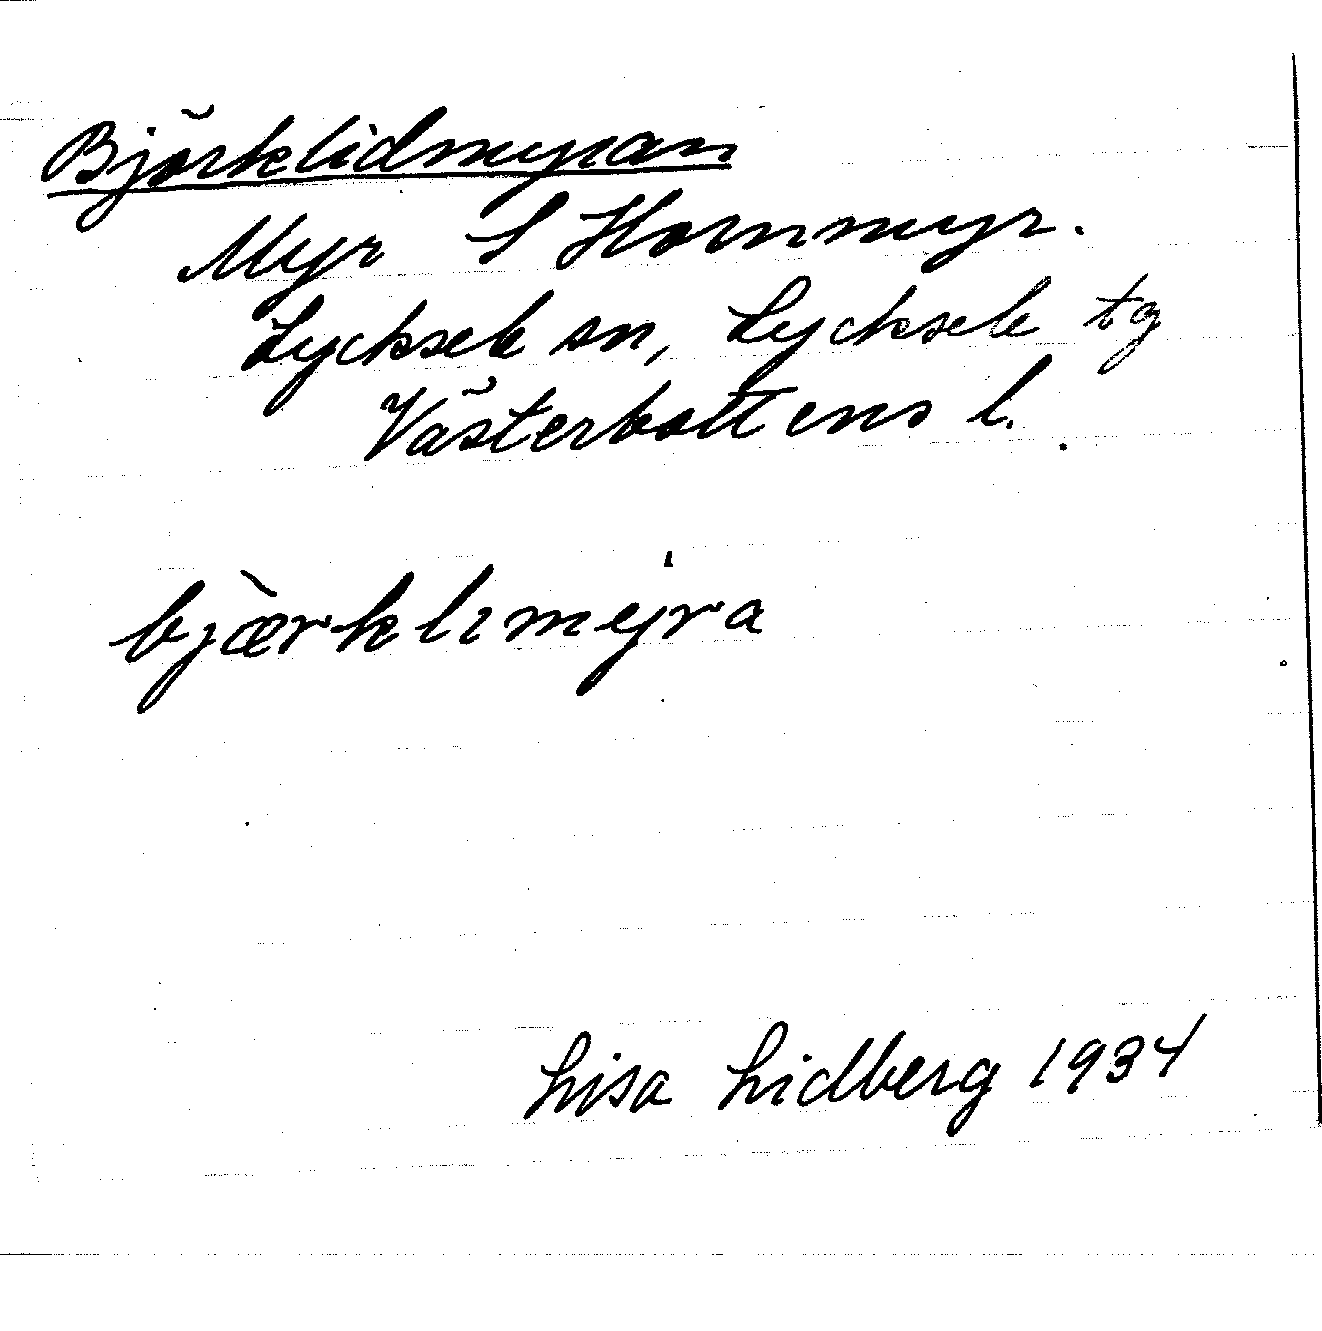 Björklidmyran
Myr S Hornmyr.
Lycksele sn, Lycksele tg
Västerbottens l.
bjæ̀rklımẹjra
Lisa Lidberg 1934